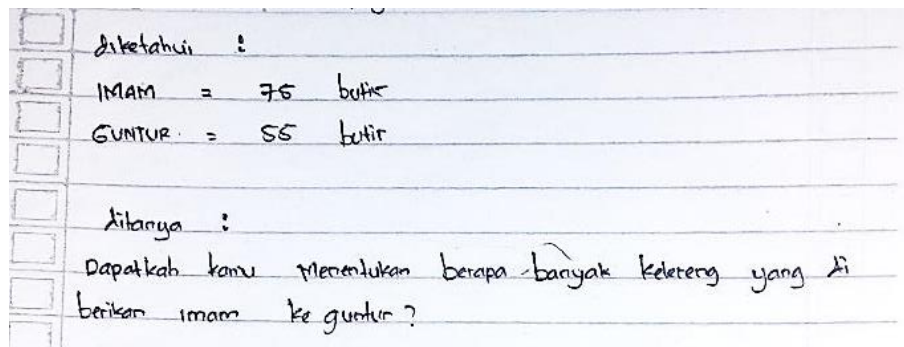 diketahui :
IMAM = 75 butir
GUNTUR. = 55 butir
ditanya :
Dapatkah kamu Menentukan berapa banyak kelereng yang di
berikan imam ke guntur?